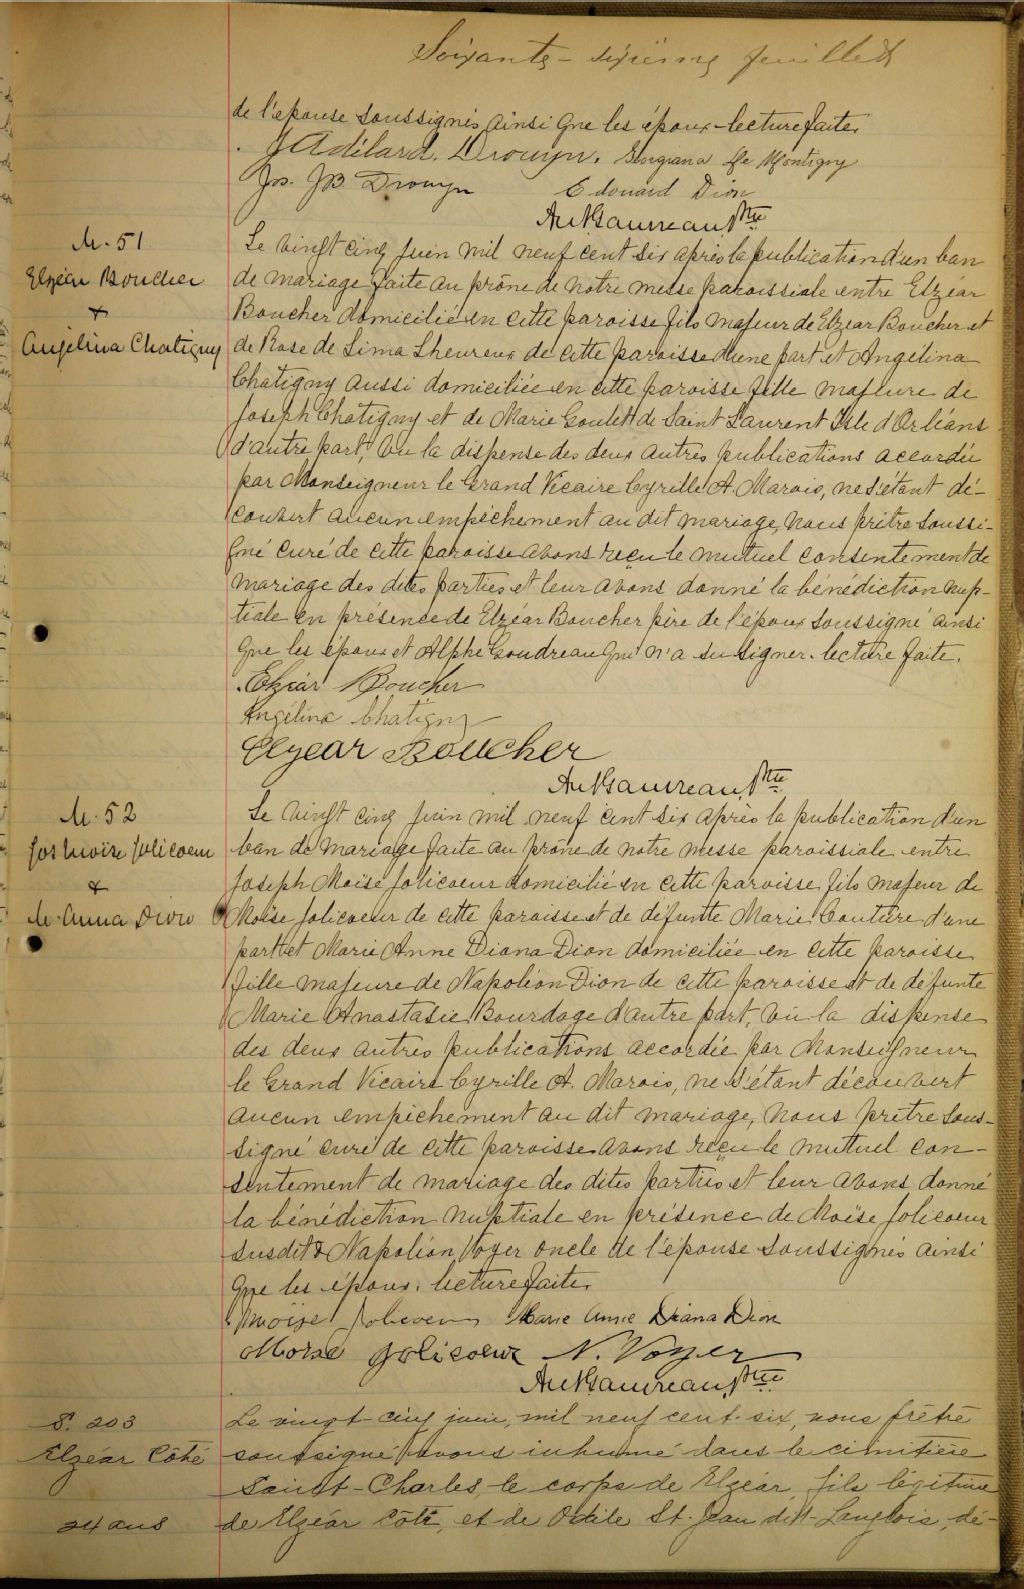 Soixante-sixième feuillet
de l'épouse soussignés ainsi que les époux-lecture faite.
J Adélard. Drouyn. Georgiana De Montigny
Jos. JB Drouyn Edouard Dion
Ant Gauvreau Ptre
M. 51
Elzéar Boucher
+
Angélina Chatigny
Le vingt cinq juin mil neuf cent six après la publication d'un ban
de mariage faite au prône de notre messe paroissiale entre Elzéar
Boucher domicilié en cette paroisse fils majeur de Elzéar Boucher et
de Rose de Lima Lheureux de cette paroisse d'une part et Angélina
Chatigny aussi domiciliée en cette paroisse fille majeure de
Joseph Chatigny et de Marie Goulet de Saint Laurent Isle d'Orléans
d'autre part, vu la dispense des deux autres publications accordée
par Monseigneur le Grand Vicaire Cyrille A. Marois, ne s'étant dé-
couvert aucun empêchement au dit mariage, Nous prêtre soussi-
gné curé de cette paroisse avons reçu le mutuel consentement de
mariage des dites parties et leur avons donné la bénédiction nup-
tiale en présence de Elzéar Boucher père de l'époux soussigné ainsi
que les époux et Alphé Goudreau qui n'a su signer. lecture faite.
Elzéar Boucher
Angélina Chatigny
Elzear Boucher
Ant Gauvreau Ptre
M. 52
Jos Moïse Jolicoeur
&
M. Anna Dion
Le vingt cinq juin mil neuf cent six après la publication d'un
ban de mariage faite au prône de notre messe paroissiale entre
Joseph Moïse Jolicoeur domicilié en cette paroisse fils majeur de
Moïse Jolicoeur de cette paroisse et de défunte Marie Couture d'une
part et Marie Anne Diana Dion domiciliée en cette paroisse
fille majeure de Napoléon Dion de cette paroisse et de défunte
Marie Anastasie Bourdage d'autre part, vu la dispense
des deux autres publications accordée par Monseigneur
le Grand Vicaire Cyrille A. Marois, ne s'étant découvert
aucun empêchement au dit mariage, Nous prêtre sous-
signé curé de cette paroisse avons reçu le mutuel con-
sentement de mariage des dites parties et leur avons donné
la bénédiction nuptiale en présence de Moïse Jolicoeur
susdit & Napoléon Voyer oncle de l'épouse soussignés ainsi
que les époux. lecture faite.
Moïse Jolicoeur Marie Anne Diana Dion
Moïse Jolicoeur N. Voyer
Ant Gauvreau Ptre
S. 203
Elzéar Côté
24 ans
Le vingt-cinq juin, mil neuf cent-six, nous prêtre
soussigné avons inhumé dans le cimetière
Saint-Charles, le corps de Elzéar, fils légitime
de Elzéar Côté, et de Odile St. Jean dit-Langlois, dé-